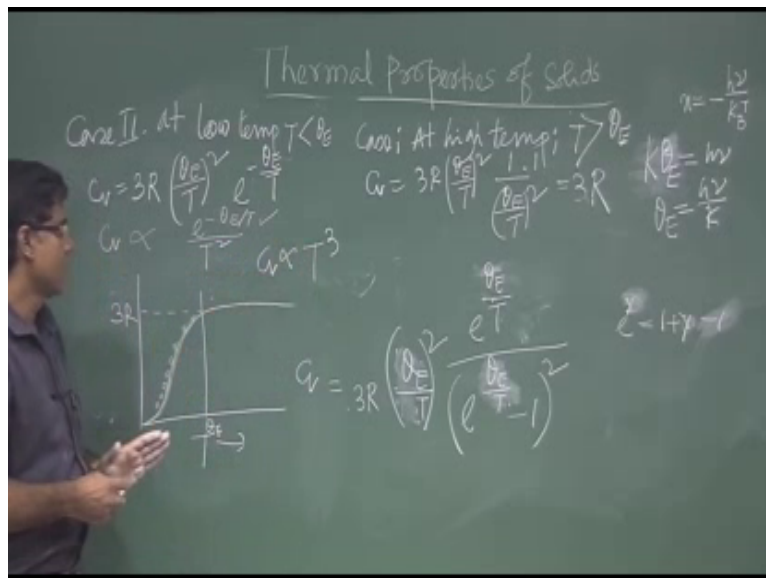 Thermal Properties of Solids
Case II. At low temp T < θ_E
C_v = 3R (θ_E/T)² e^(-θ_E/T)
C_v ∝ e^(-θ_E/T)/T²
C_v ∝ T³
3R
θ_E
T →
Case i At high temp; T > θ_E
C_v = 3R (θ_E/T)² 1.1/(θ_E/T)² = 3R
C_v = 3R (θ_E/T)² e^(θ_E/T)/(e^(θ_E/T) -1)²
x = -hν/K_BT
Kθ_E = hν
θ_E = hν/K
e^x - 1+x -1